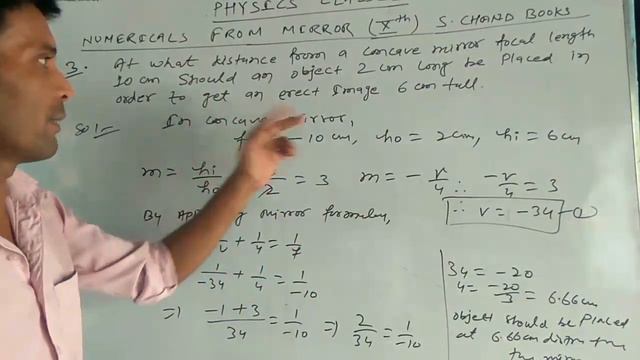 PHYSICS
NUMERICALS FROM MIRROR (Xth) S. CHAND BOOKS
3. At what distance from a concave mirror focal length
10 cm should an object 2 cm long be placed in
order to get an erect image 6 cm tall.
Sol- In concave mirror,
- 10 cm, ho = 2cm, hi = 6cm
m = hi/ho = 3 m = - v/u ∴ -v/u = 3
By mirror formula, ∴ v = -3u - ①
+ 1/u = 1/f
1/-3u + 1/u = 1/-10
⇒ -1+3/3u = 1/-10 ⇒ 2/3u = 1/-10
3u = -20
u = -20/3 = 6.66cm
object should be placed
at 6.66cm from the
the